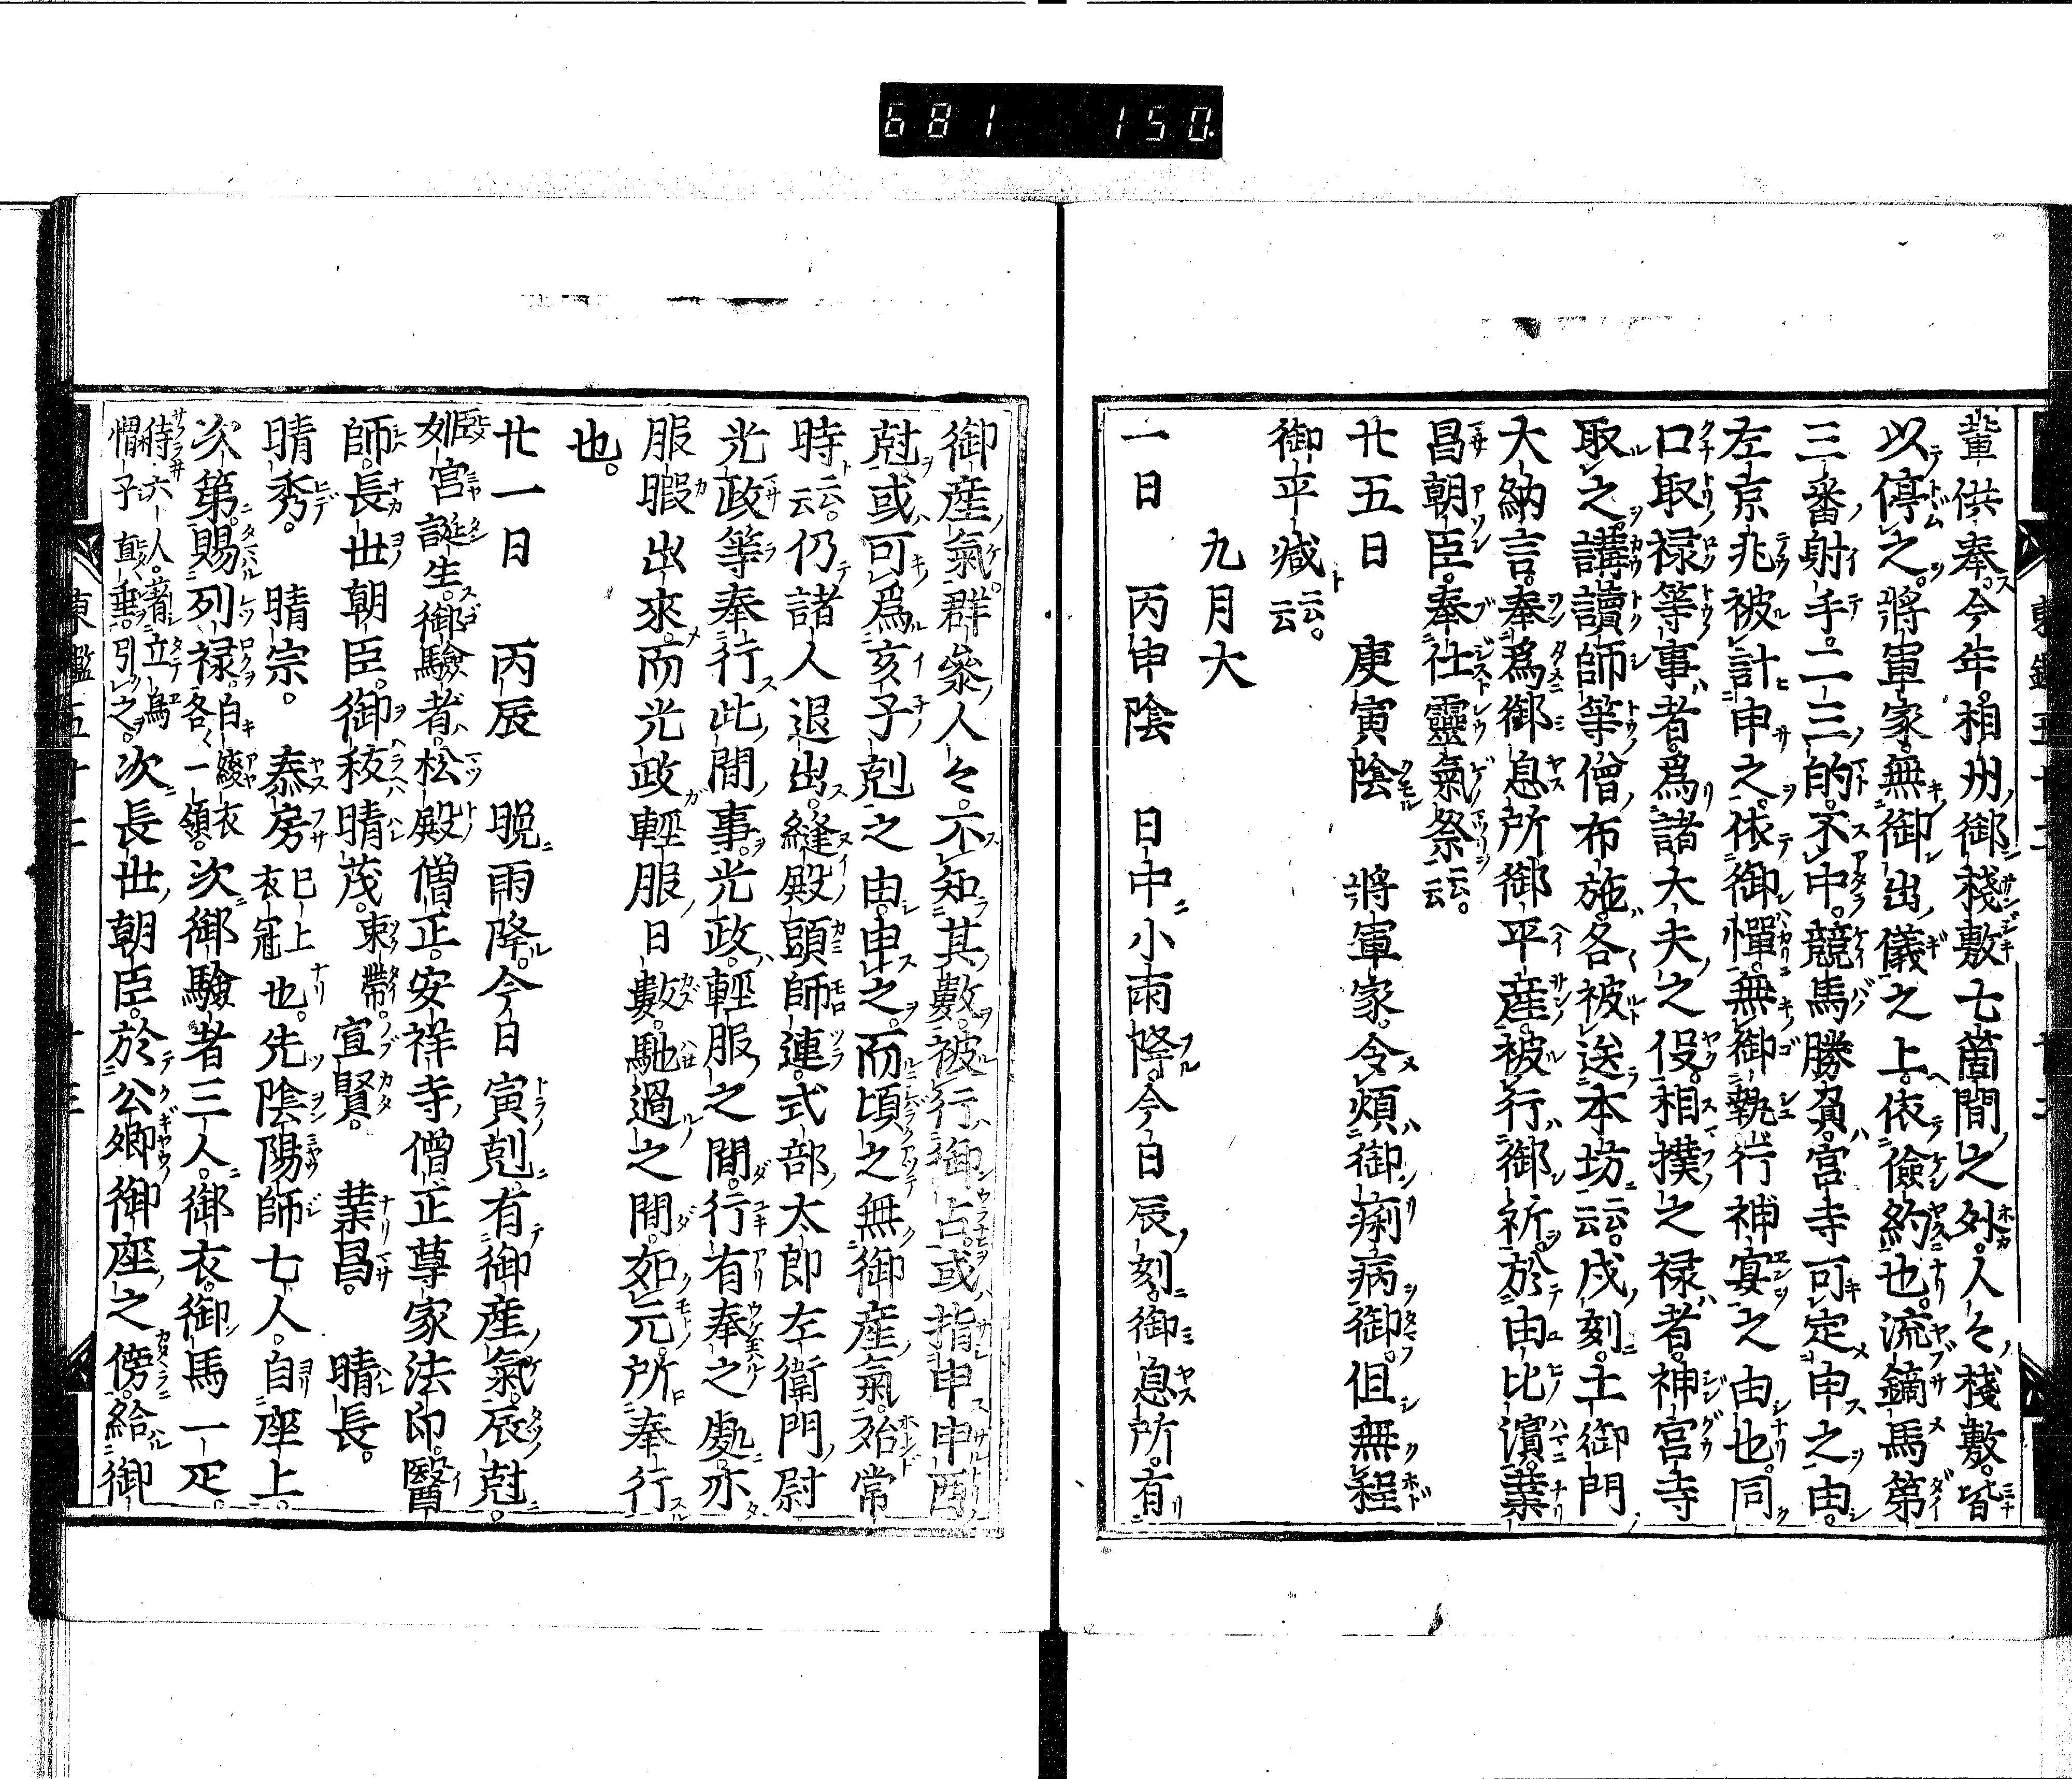 681 150
輩供奉。今年。相州御棧敷七箇間之外。人々棧敷。皆
以停之。將軍家。無御出儀之上。依儉約也。流鏑馬第
三番射手。二三的。不中。競馬勝負。宮寺可定申之由。
左京兆被計申之。依御憚。無御執行神宴之由也。同
口取祿等事者。爲諸大夫之役。相撲之祿者。神宮寺
取之。講讀師等僧布施。各被送本坊云云。戌刻。土御門
大納言。奉爲御息所御平産。被行御祈。於由比濱。業
昌朝臣。奉仕靈氣祭云云。
廿五日 庚寅陰 將軍家。令煩御痢病御。但無程
御平減云云。
九月大
一日 丙申陰 日中小雨降。今日辰刻。御息所。有
御産氣。群參人々。不知其數。被行御占。或指申申酉
尅。或可爲亥子尅之由。申之。而頃之無御産氣。殆常
時云云。仍諸人退出。縫殿頭師連。式部太郎左衛門尉
光政等奉行此間事。光政。輕服之間。行有奉之處。亦
服暇出來。而光政輕服日數。馳過之間。如元所奉行
也。
廿一日 丙辰 晩雨降。今日寅尅。有御産氣。辰尅。
姬宮誕生。御驗者。松殿僧正。安祥寺僧正尊家法印。醫
師。長世朝臣。御祓晴茂。束帶。宣賢。業昌。晴長。
晴秀。晴宗。泰房巳上衣冠也。先陰陽師七人。自座上。
次第。賜列祿。白綾衣各一領。次御驗者三人。御衣。御馬一疋。
侍六人。著立烏帽子直垂。引之。次長世朝臣。於公卿御座之傍。給御